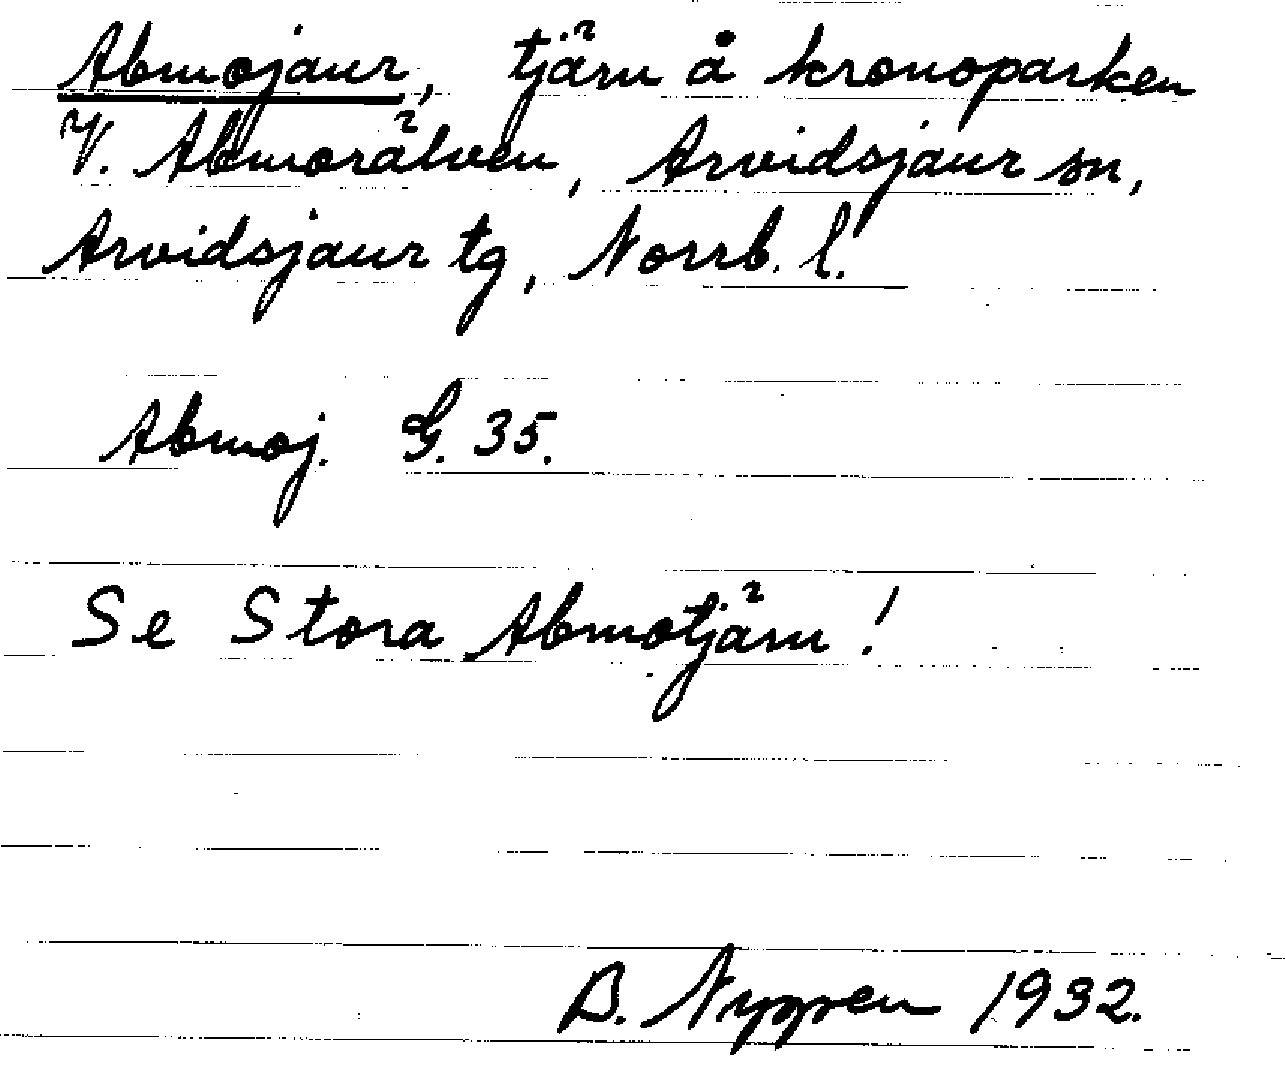 Abmojaur, tjärn å kronoparken
V. Abmorälven, Arvidsjaur sn,
Arvidsjaur tg, Norrb. l.
Abmoj. G. 35.
Se Stora Abmotjärn!
B. Nyppen 1932.